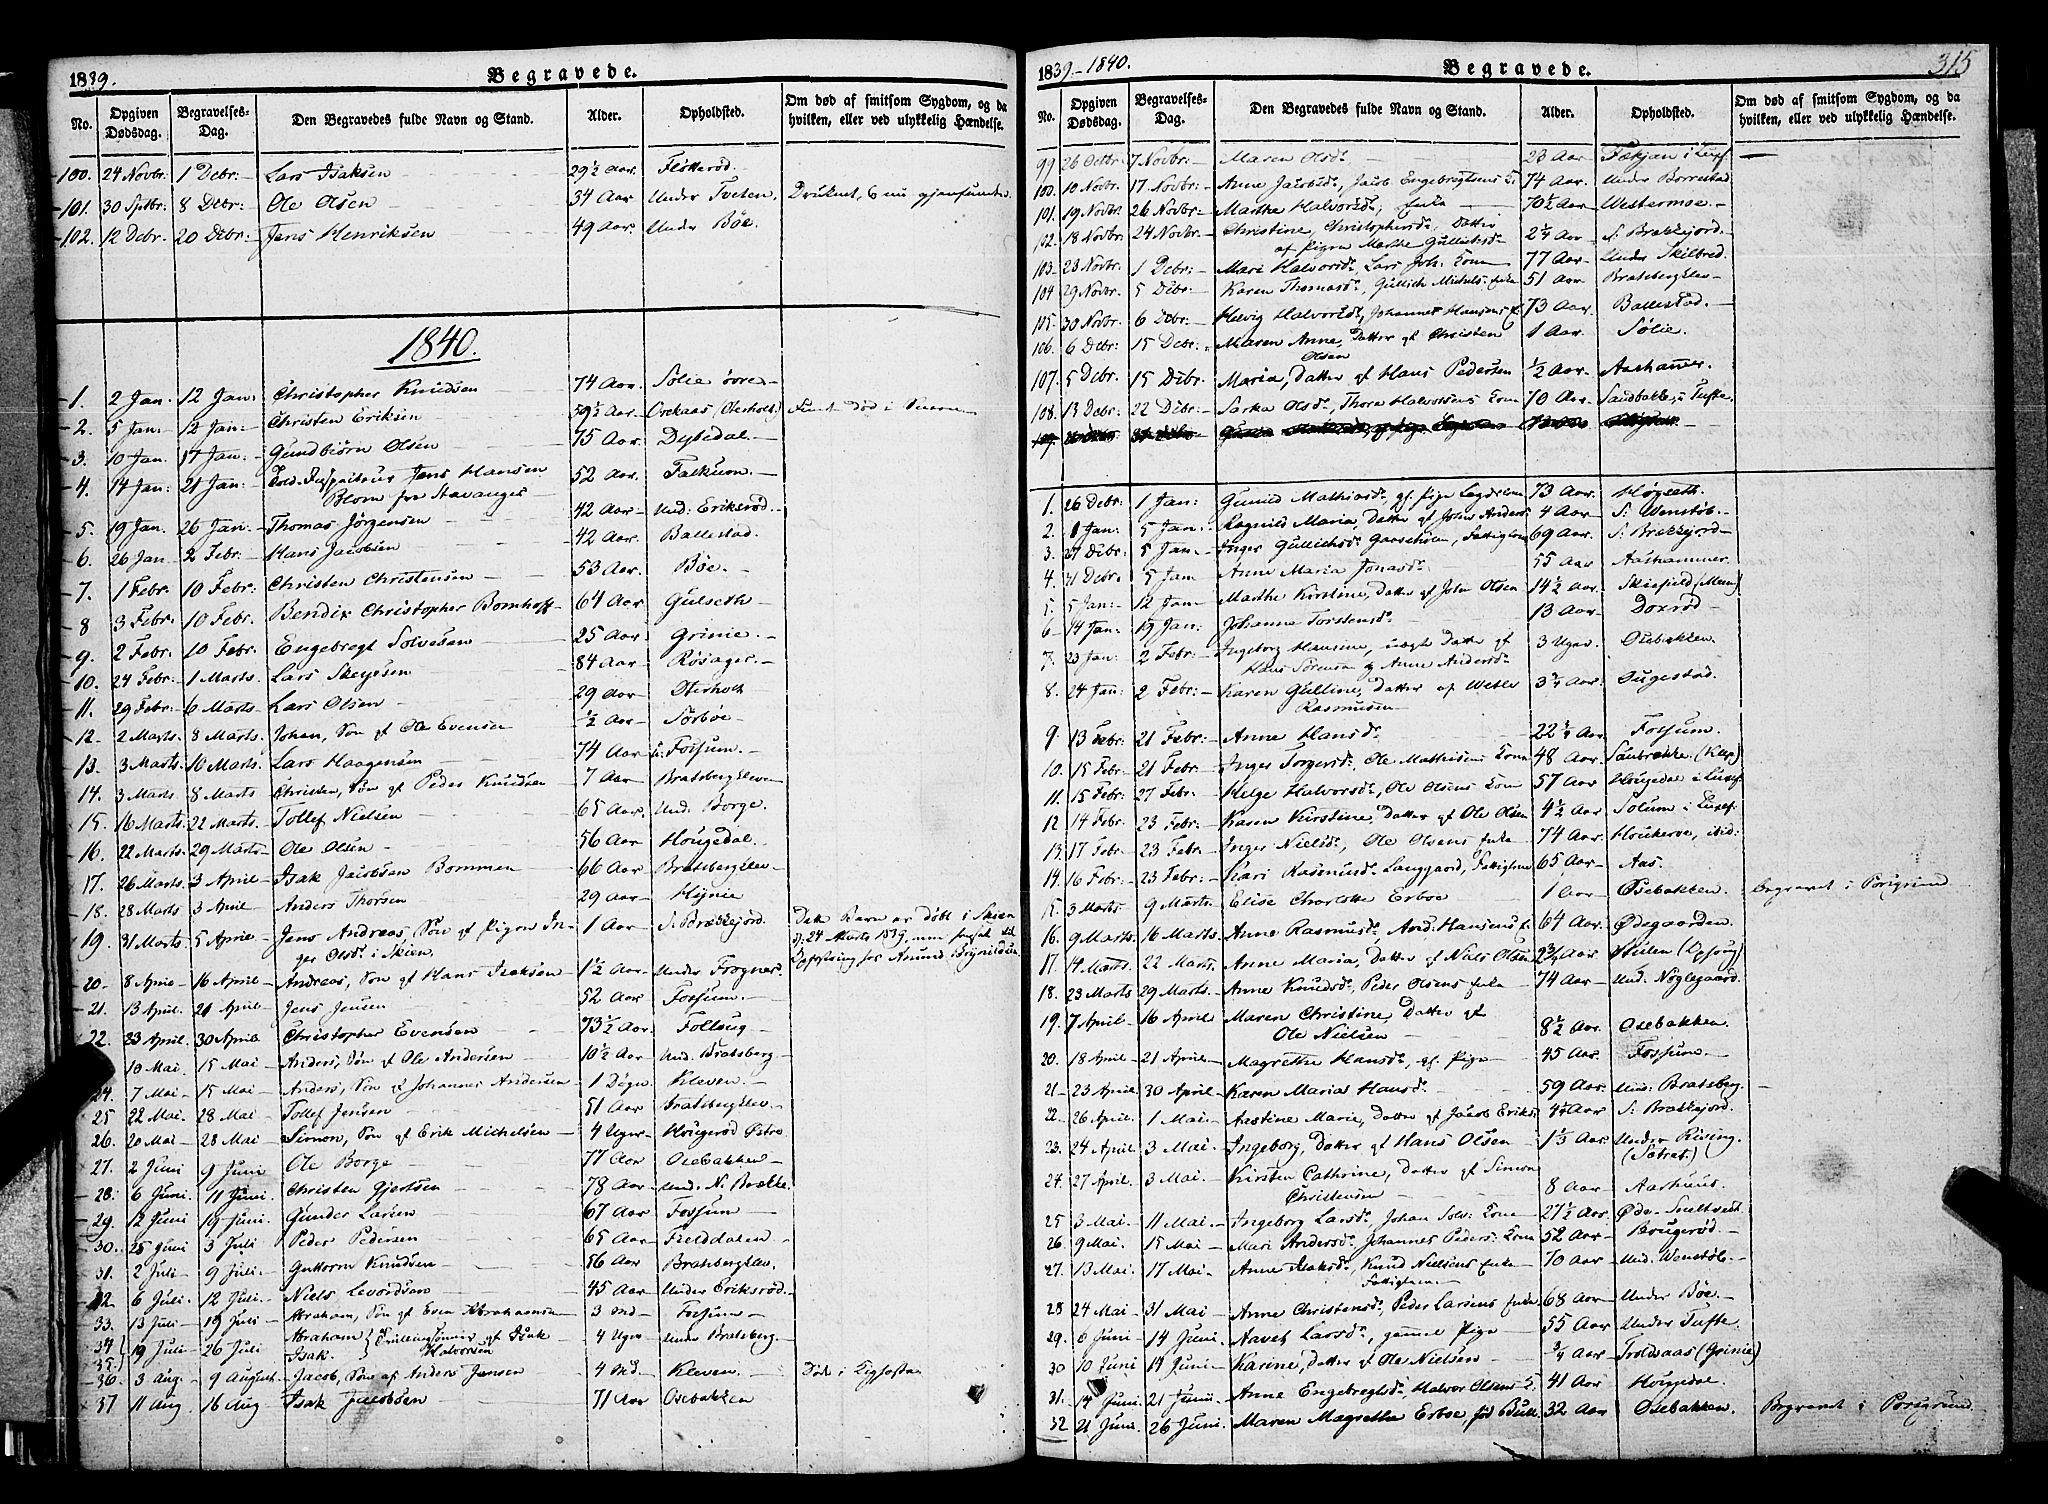 1839. Begravede.
No. Opgiven Dødsdag. Begravelses-Dag. Den Begravedes fulde Navn og Stand. Alder. Opholdsted. Om død af smitsom Sygdom, og da hvilken, eller ved ulykkelig Hændelse.
100. 24 Novbr. 1 Debr: Lars Isaksen 29½ Aar. Flotterød.
101. 30 Sptbr. 8 Debr: Ole Olsen 34 Aar Under Tveten. Druknet, & nu gjenfunden.
102. 12 Debr. 20 Debr: Jens Henriksen 49 Aar. Under Bøe.
1840.
1. 2 Jan. 12 Jan: Christopher Knudsen 74 Aar. Solie øvre
2. 5 Jan. 12 Jan: Christen Eriksen 59½ Aar. (Oterholt) død i
3. 10 Jan. 17 Jan: Gundbiørn Olsen 75 Aar. Dybedal.
4. 14 Jan: 21 Jan: Jens Hansen Blom fra Stavanger 52 Aar. Falkum.
5. 19 Jan. 26 Jan: Thomas Jørgensen 42 Aar. Und: Eriksrød.
6. 26 Jan. 2 Febr: Hans Jacobsen 42 Aar. Ballestad.
7. 1 Febr. 10 Febr: Christen Christensen 53 Aar. Bøe.
8 3 Febr. 10 Febr. Bendix Christopher Bomhoff 64 Aar. Gulseth
9. 2 Febr: 10 Febr. Engebregt Solvesen 25 Aar. Grinie.
10. 24 Febr: 1 Marts. Lars 84 Aar. Røsager.
11. 29 Febr: 6 Marts. Lars Olsen 29 Aar Oterholt
12. 2 Marts. 8 Marts. Johan, Søn af Ole Evensen ½ Aar. Sørbøe
13. 3 Marts. 10 Marts. Lars Haagensen 74 Aar Fossum.
14. 3 Marts 8 Marts Christen, Søn af Peder Knudsen 7 Aar Bratsbergklev
15. 16 Marts. 22 Marts. Tollef Nielsen 65 Aar. Und. Borge.
16. 22 Marts. 29 Marts Ole Olsen 56 Aar Hougedal.
17. 26 Marts. 3 April Isak Jacobsen Bommen 66 Aar Bratsbergklev
18. 28 Marts 3 April Anders Thorsen 29 Aar Hynie
19. 31 Marts. 5 April Jens Andreas, Søn af Pigen Inger Olsd: i Skien. 1 Aar S. Brækkejord. Dette Barn er født i Skien d: 24 Marts 1839,
20. 8 April 16 April Andreas, Søn af Hans Isaksen 1½ Aar. Under Frogner.
21. 13 April. 21 April. Jens Jensen 52 Aar Fossum.
22. 23 April. 30 April. Christopher Evensen 73½ Aar. Follaug
10 Mai. 15 Mai Anders, Søn af Ole Andersen 10½ Aar. Und. Bratsberg
24. 7 Mai 15 Mai Anders, Søn af Johannes Andersen 1 Døgn Kleven.
25 22 Mai. 28 Mai Tollef Jensen 51 Aar Bratsbergklev
26. 20 Mai 28 Mai Simon, Søn af Erik Michelsen 4 Uger Hougerød Østre
27. 2 Juni 9 Juni Ole Borge 77 Aar Osebakken
28. 6 Juni 11 Juni. Christen Gjertsen 78 Aar Und. N. Brække.
29. 12 Juni 19 Juni. Gunder Larsen 67 Aar Fossum
30. 25 Juni 3 Juli Peder Pedersen 65 Aar Fielddalen
31. 2 Juli 9 Juli. Guttorm Knudsen 56 Aar Bratsbergklev.
32 6 Juli. 12 Juli. Niels 45 Aar Under Eriksrød.
33. 13 Juli 19 Juli Abraham, Søn af Even Abrahamsen 3 Md Fossum
34 35. 19 Juli 26 Juli Abraham Isak. Tvillingsønner af Isak Halvorsen 4 Uger Under Bratsberg.
36 3 Aug. 9 August. Jacob, Søn af Anders Jensen 4 Md Kleven. Død i
37 11 Aug 16 Aug Isak Jacobsen 71 Aar Osebakken
1839.-1840. Begravede. 315
No. Opgiven Dødsdag. Begravelses-Dag. Den Begravedes fulde Navn og Stand. Alder. Opholdsted. Om død af smitsom Sygdom, og da hvilken, eller ved ulykkelig Hændelse.
99 26 Octbr. 7 Novbr: Maren Olsd: 23 Aar
100. 10 Novbr. 17 Novbr: Anne Jacobsd:, Jacob Engebregtsens 74 Aar. Under Borrestad
101. 19 Novbr. 26 Novbr: Marthe Halvorsd:, Enke 70½ Aar Westermoe.
102. 18 Novbr. 24 Novbr. Christine, Christophersd:, Datter af Pigen Marthe Gullichsd: 2¼ Aar S. Brækkejord.
103. 23 Novbr. 1 Debr: Mari Halvorsd:, Lars Joh. Kone 77 Aar. Under Skilbred
104. 29 Novbr. 5 Debr: Karen Thomasd:, Gullich Michels: Enke 51 Aar Bratsbergklev
105. 30 Novbr. 6 Debr: Helvig Halvorsd:, Johannes Hansens 73 Aar. Ballestad.
106. 6 Debr: 15 Debr: Maren Anne, Datter af Christen Olsen 1 Aar. Solie.
107. 5 Debr. 15 Debr: Maria, Datter af Hans Pedersen ½ Aar. Aashammer.
108. 13 Debr: 22 Debr: Olsd:, Thore Halvorsens Kone 70 Aar. Sandbakke, i Tufte.
1. 26 Debr: 1 Jan: Gunild Mathiasd:, gl. Pige 73 Aar. Høgseth.
2. 1 Jan: 5 Jan: Ragnild Maria, Datter af John Anders 4 Aar S: Wenstøb.
3. 27 Debr: 5 Jan: Inger Gullichsd: 69 Aar. S: Brækkejord.
4. 21 Debr: 5 Jan Anne Maria Jonasd: 55 Aar Aashammer.
5. 5 Jan: 12 Jan Marthe Kirstine, Datter af John Olsen 14½ Aar. Skiefield
6 14 Jan: 19 Jan: Johanne Torstensd: 13 Aar Doxrød
7. 23 Jan: 2 Febr: Ingeborg Hansine, uægt Datter af Hans Sørensen og Anne Andersd: 3 Uger. Osebakken.
8. 24 Jan: 2 Febr: Karen Gulline, Datter af Rasmussen 3¾ Aar. Ougestad.
9 13 Febr: 21 Febr: Anne Hansd: 22¾ Aar Fossum.
10. 15 Febr: 21 Febr: Inger Torgersd:, Ole Mathisens Kone 48 Aar.
11. 15 Febr: 27 Febr: Helge Halvorsd:, Ole Olsens Kone 57 Aar Hougedal
12 14 Febr. 23 Febr: Karen Kirstine, Datter af Ole Olsen 4½ Aar Solum
13. 17 Febr. 23 Febr. Inger Nielsd:, Ole Olsens Enke 74 Aar. ibid:
14. 16 Febr. 23 Febr: Kari Rasmusd: Langgaard, 65 Aar. Aas.
15. 3 Marts 9 Marts. Elise Charlotte Erboe 1 Aar Osebakken. Begravet i Porsgrund
16. 9 Marts. 16 Marts. Anne Rasmusd:, And: Hansens 64 Aar. Ødegaarden
17. 14 Marts. 22 Marts. Anne Maria, Datter af Niels Olsen Aar
18. 23 Marts 29 Marts. Anne Knudsd:, Peder Olsens Enke 74 Aar. Und. Nøglegaard.
19. 7 April 16 April Maren Christine, Datter af Ole Nielsen 8½ Aar. Osebakken.
20. 18 April 21 April Magrethe Hansd:, gl. Pige 45 Aar. Fossum
21. 23 April. 30 April. Karen Maria Hansd: 59 Aar. Und: Bratsberg.
22. 26 April. 1 Mai Aastine Marie, Datter af Jacob Eriks Aar S: Brækkejord.
23. 24 April. 3 Mai Ingeborg, Datter af Hans Olsen 1⅓ Aar. Under Riving.
24. 27 April. 3 Mai. Kirsten Cathrine, Datter af Simon Christensen 8 Aar. Aarhuus.
25 3 Mai. 11 Mai Ingeborg Larsd:, Johan Solv: Kone 27½ Aar. Øde
26. 9 Mai. 15 Mai Mari Andersd:, Johannes Peders: Kone 52 Aar. Brugerød.
27. 13 Mai. 17 Mai Anne Isaksd:, Knud Nielsens Enke 70 Aar. Und. Wenstøb.
28 24 Mai 31 Mai Anne Christensd:, Peder Larsens Enke 68 Aar Under Bøe.
29. 6 Juni 14 Juni. Larsd:, gammel Pige 55 Aar Under Tufte.
30 10 Juni 14 Juni Karine, Datter af Ole Nielsen ¾ Aar. Troldsaas (Grinie)
31. 14 Juni 21 Juni Anne Engebregtsd:, Halvor Olsens 41 Aar. Hougedal.
32 21 Juni. 26 Juni. Maren Magrethe Erboe, fød 32 Aar Osebakken. Begravet i Porsgrund.